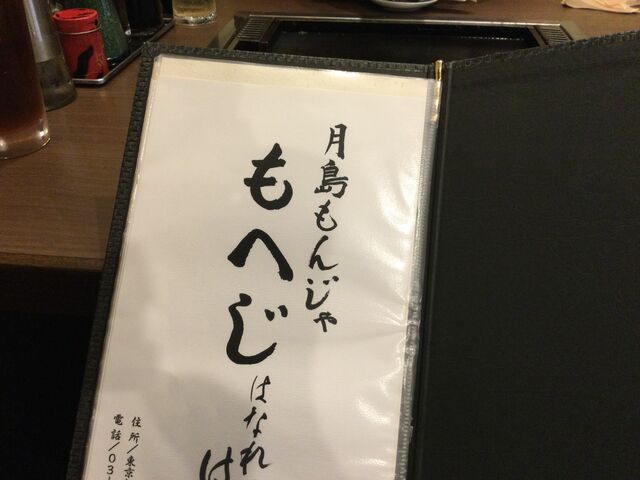 月島もんじゃ
もへじ
はなれ
は
住所/東京
電話/03